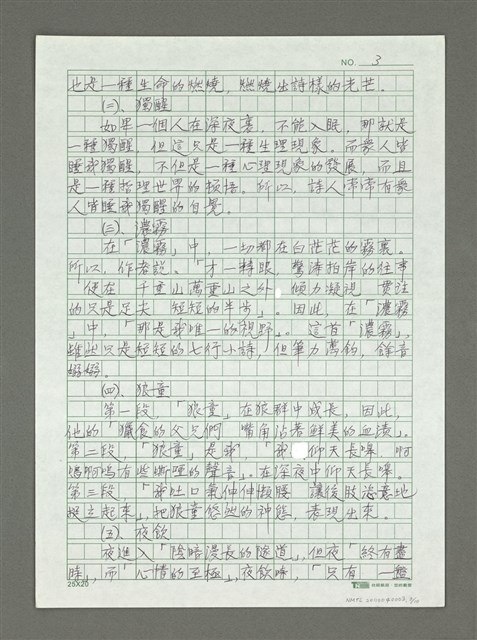 NO. 3
也是一種生命的燃燒，燃燒出詩樣的光芒。
(二)、獨醒
如果一個人在深夜裏，不能入眠，那就是
一種獨醒，但這只是一種生理現象。而眾人皆
睡我獨醒，不但是一種心理現象的發展，而且
是一種哲理世界的領悟。所以，詩人常常有眾
人皆睡我獨醒的自覺。
(三)、濃霧
在「濃霧」中，一切都在白茫茫的霧裏。
所以，作者說。「才一轉眼 驚濤拍岸的往事
便在 千重山萬重山之外 傾力凝視 貫注
的只是足夫 短短的半步」。因此，在「濃霧
」中，「那是我唯一的視野」。這首「濃霧」，
雖然只是短短的七行小詩，但筆力萬鈞，餘音
嫋嫋。
(四)、狼童
第一段，「狼童」在狼群中成長，因此，
他的「獵食的父兄們 嘴角沾著鮮美的血漬」。
第二段，「狼童」是我「我 仰天長嗥 啊
嗚啊嗚有些嘶啞的聲音」。在深夜中仰天長嗥。
第三段，「我吐口氣伸伸懶腰 讓後肢恣意地
挺立起來」，把狼童悠然的神態，表現出來。
(五)、夜飲
夜進入「陰暗漫長的隧道」，但夜「終有盡
時」，而「心情的至極」，夜飲時，「只有 一盤
25X20